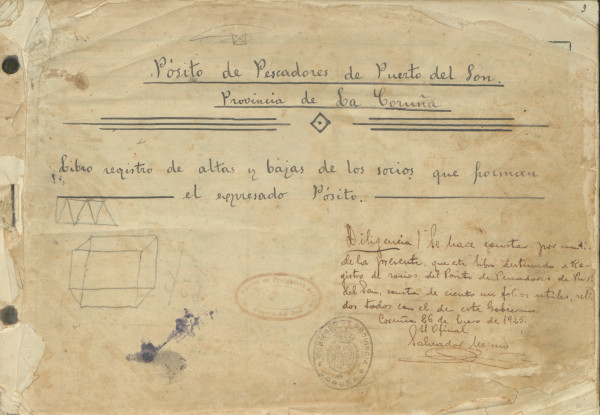 3
Pósito de Pescadores de Puerto del Son.
Provincia de La Coruña
Libro registro de altas y bajas de los socios que forman
el expresado Pósito.
Diligencia / Se hace constar por medio
de la presente, que este libro destinado a Re-
gistro de socios del Pósito de Pescadores de Puerto
del Son, consta de ciento un folios utiles, sella-
dos todos con el de este Gobierno.
Coruña 26 de Enero de 1925.
El Oficial
Salvador